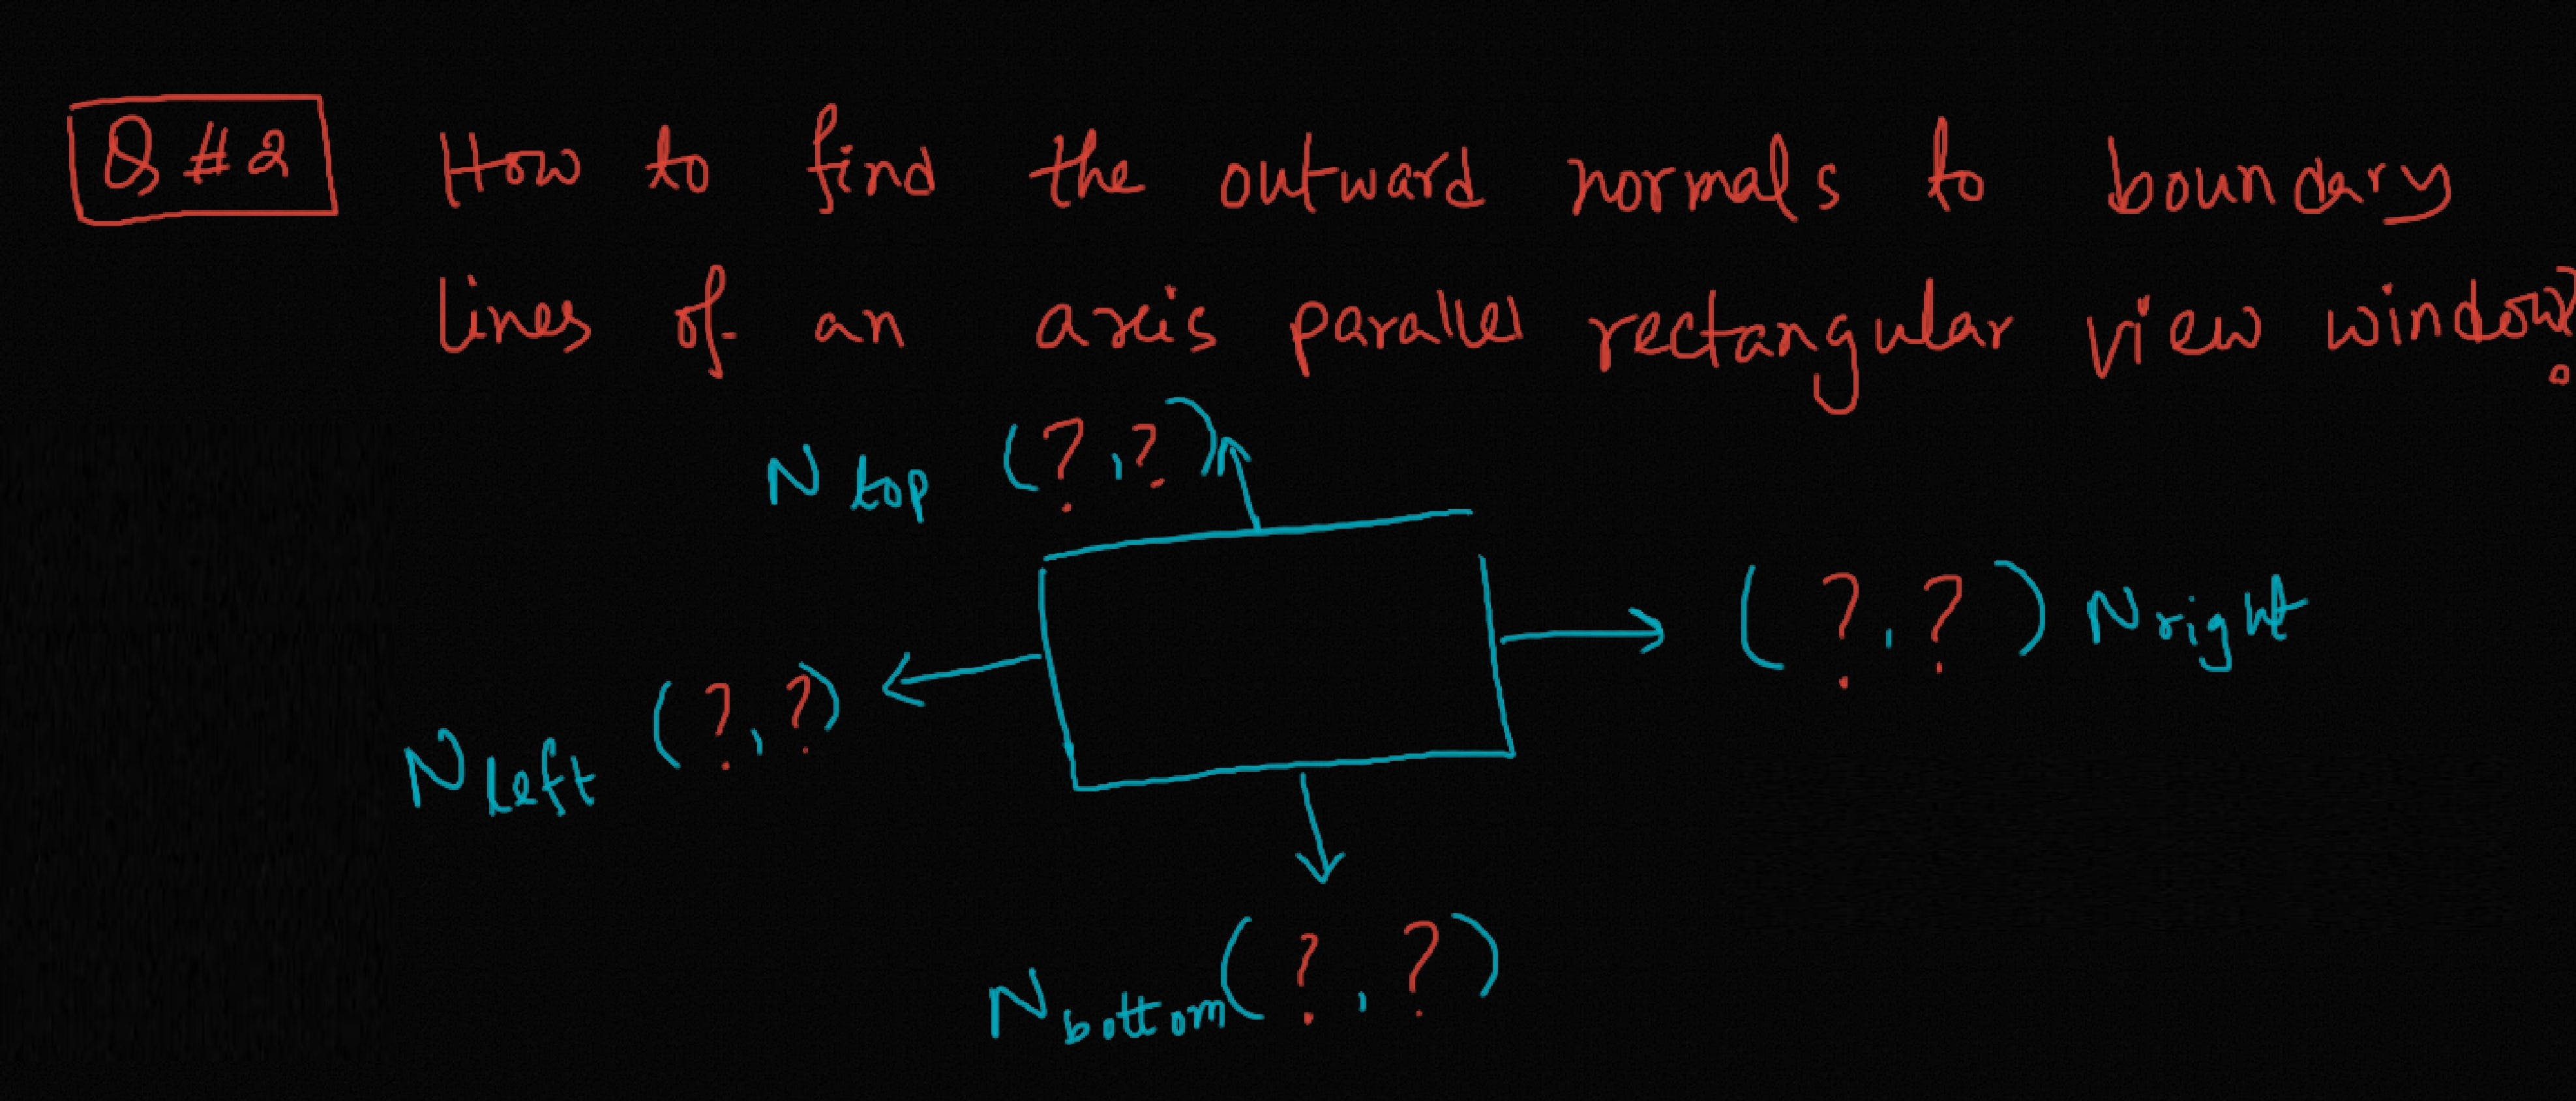 Q #2 How to find the outward normals to boundary
lines of an axis parallel rectangular view window?
N top (?,?)
(?,?) N right
N left (?,?)
N bottom (?,?)